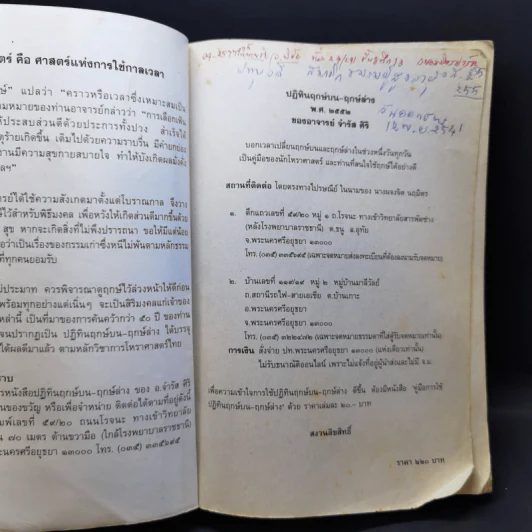 ตร์ คือ ศาสตร์แห่งการใช้กาลเวลา
ษ์" แปลว่า "คราวหรือเวลาซึ่งเหมาะสมเป็น
มหมายของท่านอาจารย์กล่าวว่า "การเลือกเฟ้น
ให้ประสบส่วนดีด้วยประการทั้งปวง สำเร็จได้
ร้ายเกิดขึ้น เดิมไปด้วยความราบรื่น มีค่ายกย่อง
านมีความสุขกายสบายใจ ทำให้บังเกิดผลมั่งคั่ง
ลฯ"
รย์ได้ใช้ความสังเกตมาตั้งแต่โบราณกาล จึงวาง
ไว้สำหรับพิธีมงคล เพื่อหวังให้เกิดส่วนดีมากขึ้นด้วย
สุข หากจะเกิดสิ่งที่ไม่พึงปรารถนา ขอให้มีแต่น้อย
อว่าเป็นเรื่องของกรรมเก่าซึ่งหนีไม่พ้นตามหลักธรรม
ที่ทุกคนยอมรับ
ม่ประมาท ควรพิจารณาดูฤกษ์ไว้ล่วงหน้าให้ดีก่อน
พร้อมทุกอย่างแต่เนิ่นๆ จะเป็นสิริมงคลแก่เจ้าของ
เหล่านี้ เป็นที่มาของการค้นคว้ากว่า ๕๐ ปี ของท่าน
จนปรากฏเป็น ปฏิทินฤกษ์บน-ฤกษ์ล่าง ได้บรรจุ
ได้ผลดีมาแล้ว ตามหลักวิชาการโหราศาสตร์ไทย
ราบ
รหนังสือปฏิทินฤกษ์บน-ฤกษ์ล่าง ของ อ.จำรัส ศิริ
นของขวัญ หรือเพื่อจำหน่าย ติดต่อได้ตามที่อยู่ดังนี้
มพ์เลขที่ ๕๙/๒๐ ถนนโรจนะ ทางเข้าวิทยาลัย
น ๗๐ เมตร ด้านขวามือ (ใกล้โรงพยาบาลราชธานี)
ะนครศรีอยุธยา ๑๓๐๐๐ โทร. (๐๓๕) ๓๓๕๖๙๕
ปฏิทินฤกษ์บน-ฤกษ์ล่าง
พ.ศ. ๒๕๕๒
ของอาจารย์ จำรัส ศิริ
บอกเวลาเปลี่ยนฤกษ์บนและฤกษ์ล่างในช่วงหนึ่งวันทุกวัน
เป็นคู่มือของนักโหราศาสตร์ และท่านที่สนใจใช้ฤกษ์ได้อย่างดี
สถานที่ติดต่อ โดยตรงทางไปรษณีย์ ในนามของ นางผจงจิต นฤมิตร
๑. ตึกแถวเลขที่ ๕๙/๒๐ หมู่ ๑ ถ.โรจนะ ทางเข้าวิทยาลัยสารพัดช่าง
(หลังโรงพยาบาลราชธานี) ต.ธนู อ.อุทัย
จ.พระนครศรีอยุธยา ๑๓๐๐๐
โทร. (๐๓๕) ๓๓๕๖๙๕ (เฉพาะจดหมายส่งลงทะเบียนที่ต้องลงนามรับจดหมาย)
๒. บ้านเลขที่ ๑๑๙/๑๙ หมู่ ๒ หมู่บ้านมาลีวัลย์
ถ.สถานีรถไฟ-สายเอเซีย ต.บ้านเกาะ
อ.พระนครศรีอยุธยา
จ.พระนครศรีอยุธยา ๑๓๐๐๐
โทร. (๐๓๕) (เฉพาะจดหมายธรรมดาที่ใส่ตู้รับจดหมายเท่านั้น)
การเงิน สั่งจ่าย ปท.พระนครศรีอยุธยา ๑๓๐๐๐ (แห่งเดียวเท่านั้น)
ไม่รับธนาณัติออนไลน์ เพราะไม่แจ้งที่อยู่ผู้นำส่งและไม่มี จ.ม.
เพื่อความเข้าใจการใช้ปฏิทินฤกษ์บน-ฤกษ์ล่าง ดีขึ้น ต้องมีหนังสือ "คู่มือการใช้
ปฏิทินฤกษ์บน-ฤกษ์ล่าง" ด้วย ราคาเล่มละ ๒๐.- บาท
สงวนลิขสิทธิ์
ราคา ๒๒๐ บาท